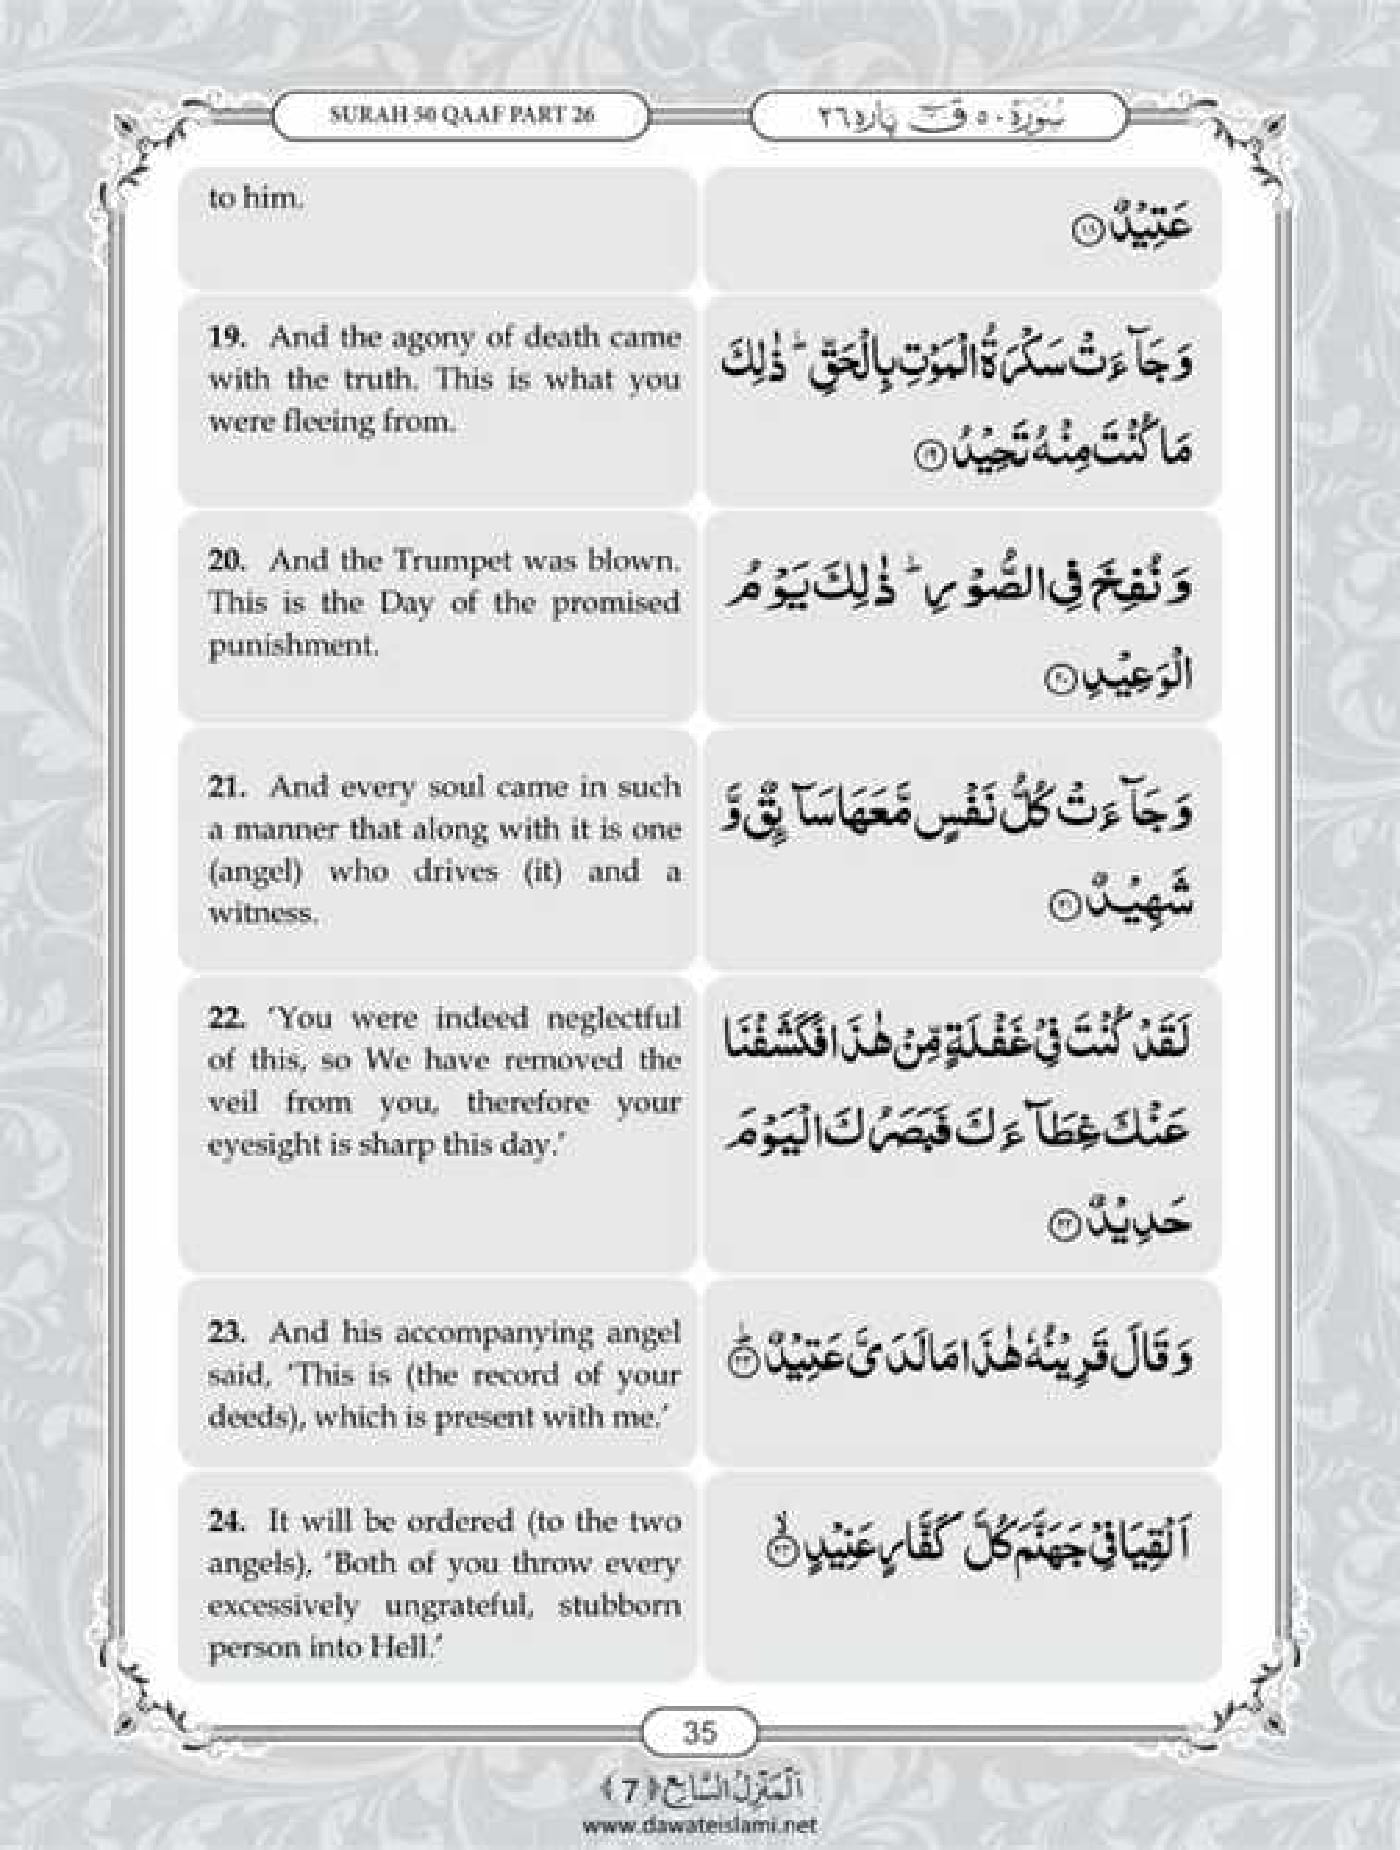 SURAH 50 QAAF PART 26
سُوْرَۃ ٥٠ قٓ پارہ ٢٦
to him.
عَتِیْدٌ ﴿۱۸﴾
19. And the agony of death came
with the truth. This is what you
were fleeing from.
وَ جَآءَتْ سَكْرَةُ الْمَوْتِ بِالْحَقِّ ؕ ذٰلِكَ
مَا كُنْتَ مِنْهُ تَحِیْدُ ﴿۱۹﴾
20. And the Trumpet was blown.
This is the Day of the promised
punishment.
وَ نُفِخَ فِی الصُّوْرِ ؕ ذٰلِكَ یَوْمُ
الْوَعِیْدِ ﴿۲۰﴾
21. And every soul came in such
a manner that along with it is one
(angel) who drives (it) and a
witness.
وَ جَآءَتْ كُلُّ نَفْسٍ مَّعَهَا سَآىٕقٌ وَّ
شَهِیْدٌ ﴿۲۱﴾
22. ‘You were indeed neglectful
of this, so We have removed the
veil from you, therefore your
eyesight is sharp this day.’
لَقَدْ كُنْتَ فِیْ غَفْلَةٍ مِّنْ هٰذَا فَكَشَفْنَا
عَنْكَ غِطَآءَكَ فَبَصَرُكَ الْیَوْمَ
حَدِیْدٌ ﴿۲۲﴾
23. And his accompanying angel
said, ‘This is (the record of your
deeds), which is present with me.’
وَ قَالَ قَرِیْنُهٗ هٰذَا مَا لَدَیَّ عَتِیْدٌ ؕ﴿۲۳﴾
24. It will be ordered (to the two
angels), ‘Both of you throw every
excessively ungrateful, stubborn
person into Hell.’
اَلْقِیَا فِیْ جَهَنَّمَ كُلَّ كَفَّارٍ عَنِیْدٍ ۙ﴿۲۴﴾
35
اَلْمَنْزِلُ السَّابِع ﴿7﴾
www.dawateislami.net